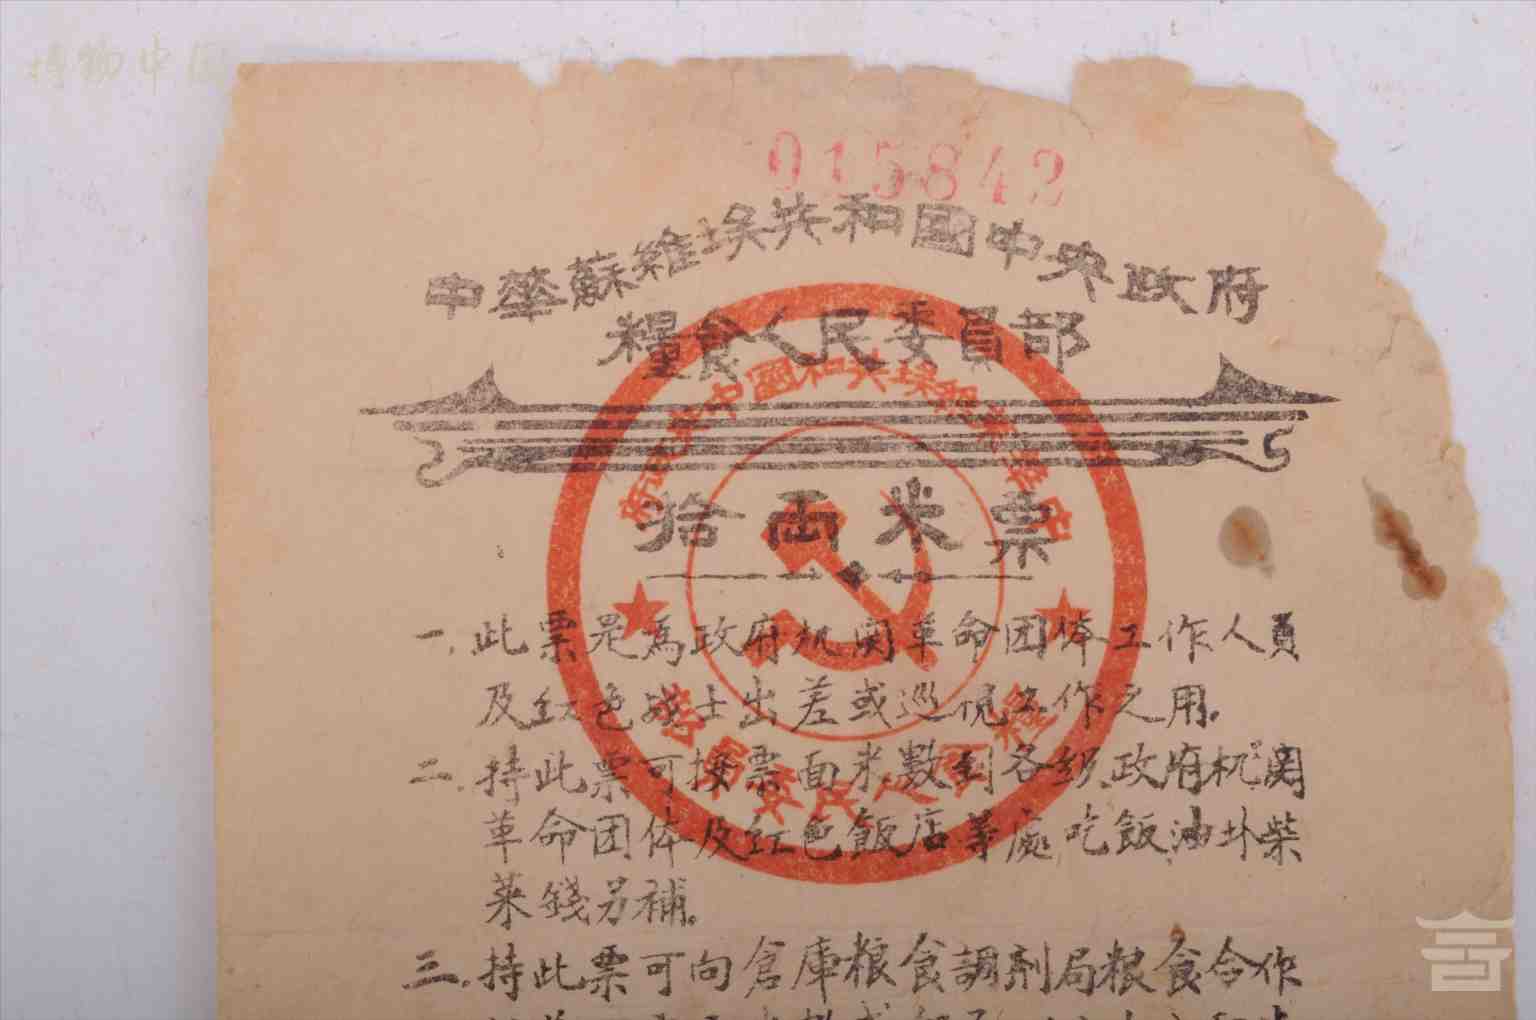 博物中国
015842
中華蘇維埃共和國中央政府
糧食人民委員部
拾兩米票
一.此票是為政府机関革命团体工作人員
及紅色战士出差或巡視工作之用.
二.持此票可按票面米数到各級政府机関
革命团体及紅色飯店等處吃飯油盐柴
菜錢另補。
三.持此票可向倉庫粮食調剂局粮食合作
中華蘇維埃共和國中央政府
糧食人民委員部